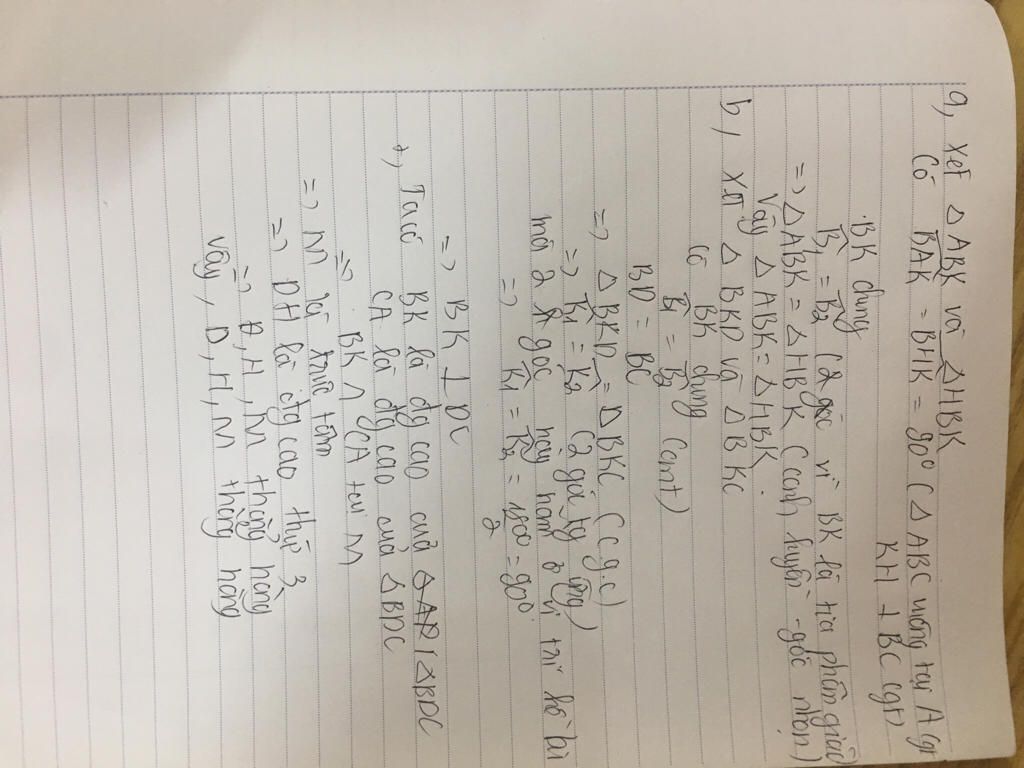 a, Xét △ABK và △HBK
Có BAK = BHK = 90° (△ABC vuông tại A (gt)
KH ⊥ BC (gt)
BK chung
B1 = B2 (2 góc vì BK là tia phân giác)
=> △ABK = △HBK (cạnh huyền - góc nhọn)
Vậy △ABK = △HBK
b, Xét △BKD và △BKC
Có BK chung
B1 = B2 (cmt)
BD = BC
=> △BKD = △BKC (c g c)
=> K1 = K2 (2 góc tg ứng)
mà 2 góc này nằm ở vị trí kề bù
=> K1 = K2 = 180/2 = 90°
=> BK ⊥ DC
Ta có BK là đg cao của △BDC
CA là đg cao của △BDC
=> BK ∩ CA tại M
=> M là trực tâm
=> DH là đg cao thứ 3
=> D, H, M thẳng hàng
Vậy, D, H, M thẳng hàng